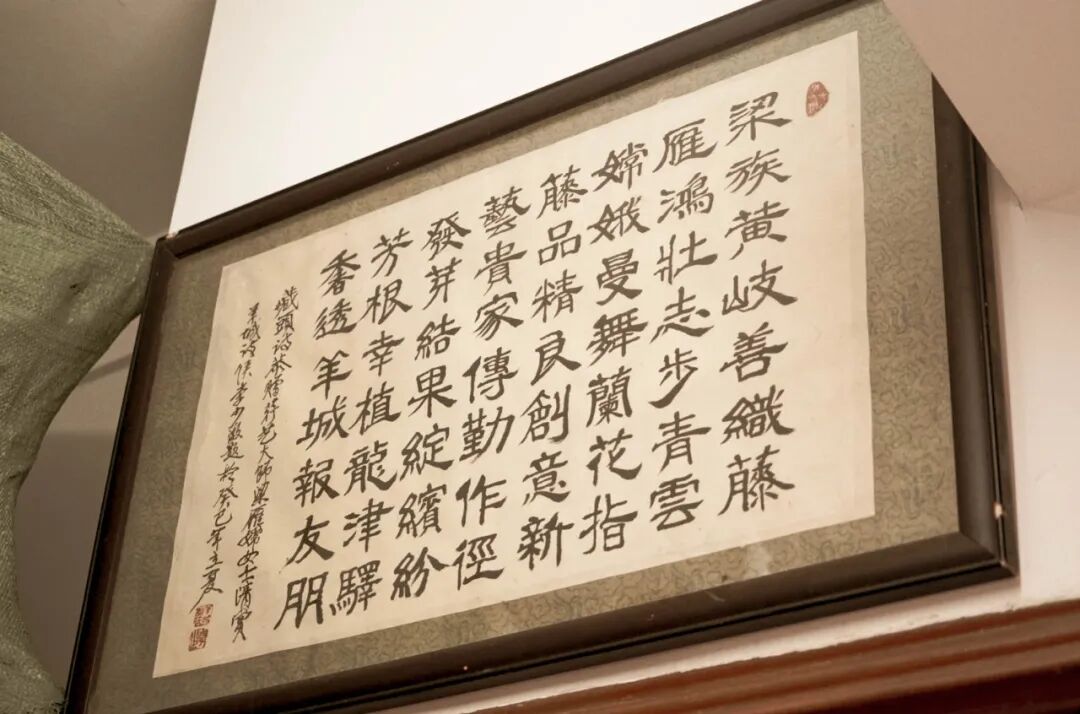 梁族黄岐善織藤
雁鴻壯志步青雲
嫦娥曼舞蘭花指
藤品精良創意新
藝貴家傳勤作徑
發芽結果綻繽紛
芳根幸植龍津驛
香透羊城報友朋
藏頭詩恭贈藤艺大師梁雁嫦女士清賞
羊城詩侠李少題於癸巳年立夏